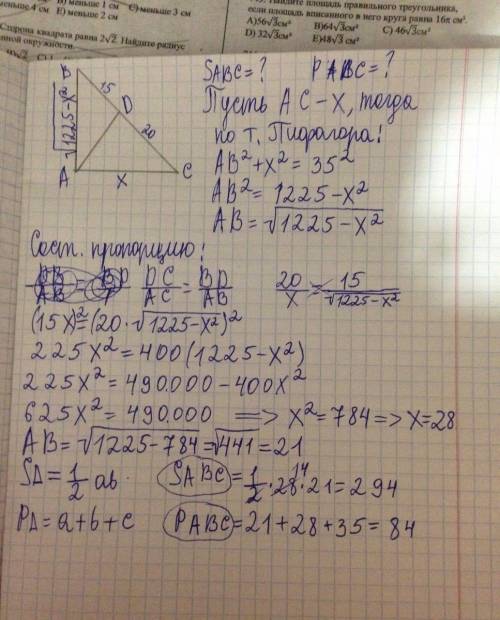 меньше 4 см
В) меньше 1 см
С) меньше 3 см
Е) меньше 2 см
Сторона квадрата равна 2√2. Найдите радиус
окружности.
Найдите площадь правильного треугольника,
если площадь вписанного в него круга равна 16π см².
А)56√3см²
В)64√3см²
С) 46√3см²
D) 32√3см²
Е)48√3 см²
B
15
D
20
√1225-x²
A
X
C
SABC=? PABC=?
Пусть AC-X, тогда
по т. Пифагора:
AB²+x²=35²
AB²=1225-x²
AB=√1225-x²
Сост. пропорцию:
DC/AC=BD/AB 20/x=15/√1225-x²
(15x)²=(20·√1225-x²)²
225x²=400(1225-x²)
225x²=490.000-400x²
625x²=490.000 => x²=784=>x=28
AB=√1225-784=√441=21
S∆=1/2 ab SABC=1/2·28·21=294
14
P∆=a+b+c PABC=21+28+35=84